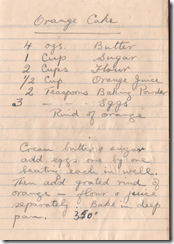 Orange Cake
4 ozs. Butter
1 Cup Sugar
2 Cups Flour
1/2 Cup Orange Juice
2 Teaspoons Baking Powder
3 — — Eggs
Rind of orange
Cream butter & sugar
add eggs one by one
beating each in well.
Then add grated rind of
orange — flour & juice
separately. Bake in deep
pan. 350°